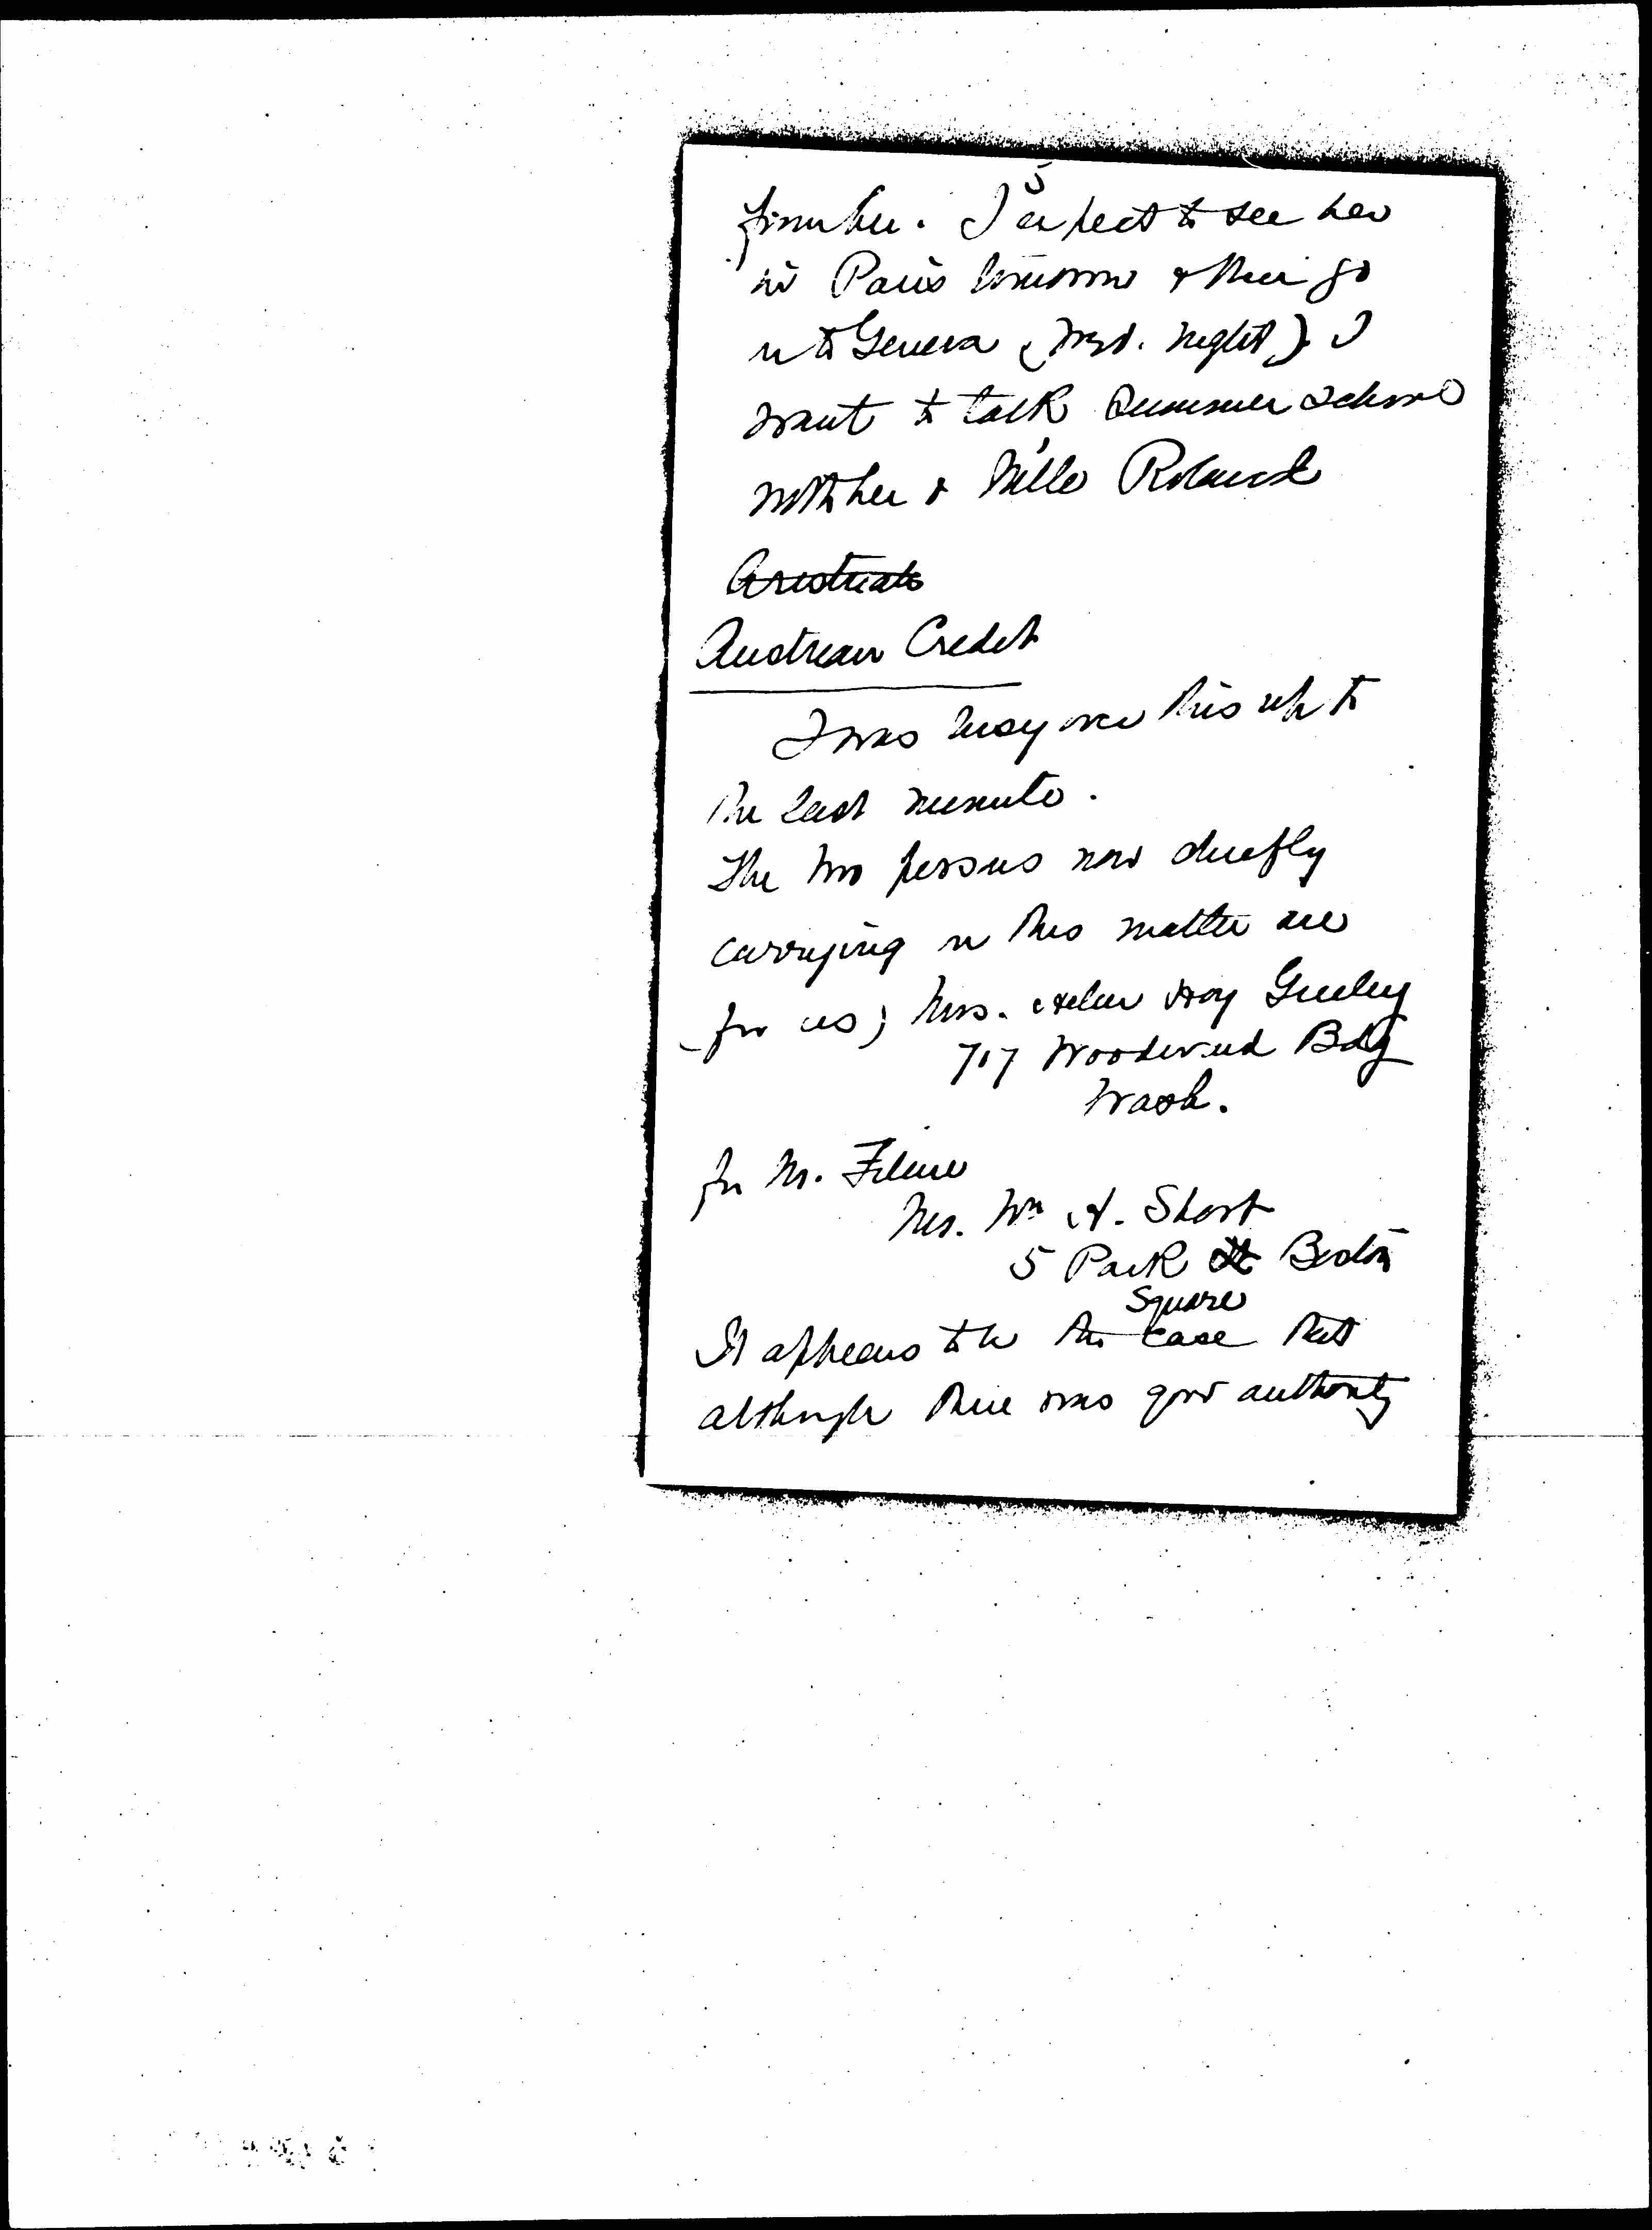 5
from her. I expect to see her
in Paris tomorrow & then go
on to Geneva (Wed. night). I
want to talk summer school
with her & Mlle Roland
Austrian Credit
I was busy over this up to
the last minute.
The two persons now chiefly
carrying on this matter are
for us; Mrs. Helen Hoy Greeley
707 Woodward Bdg
Wash.
for Mr. Filene
Mr. Wm H. Short
5 Park St Boston
Square
It appears to be the case that
although there was good authority